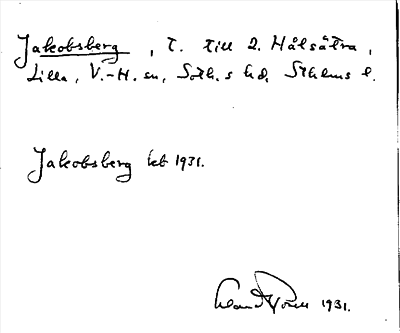 Jakobsberg, T. till 2. Hålsätra,
Lilla, V.-H. sn, Soth.s hd, Sthlms l.
Jakobsberg kb 1931.
1931.